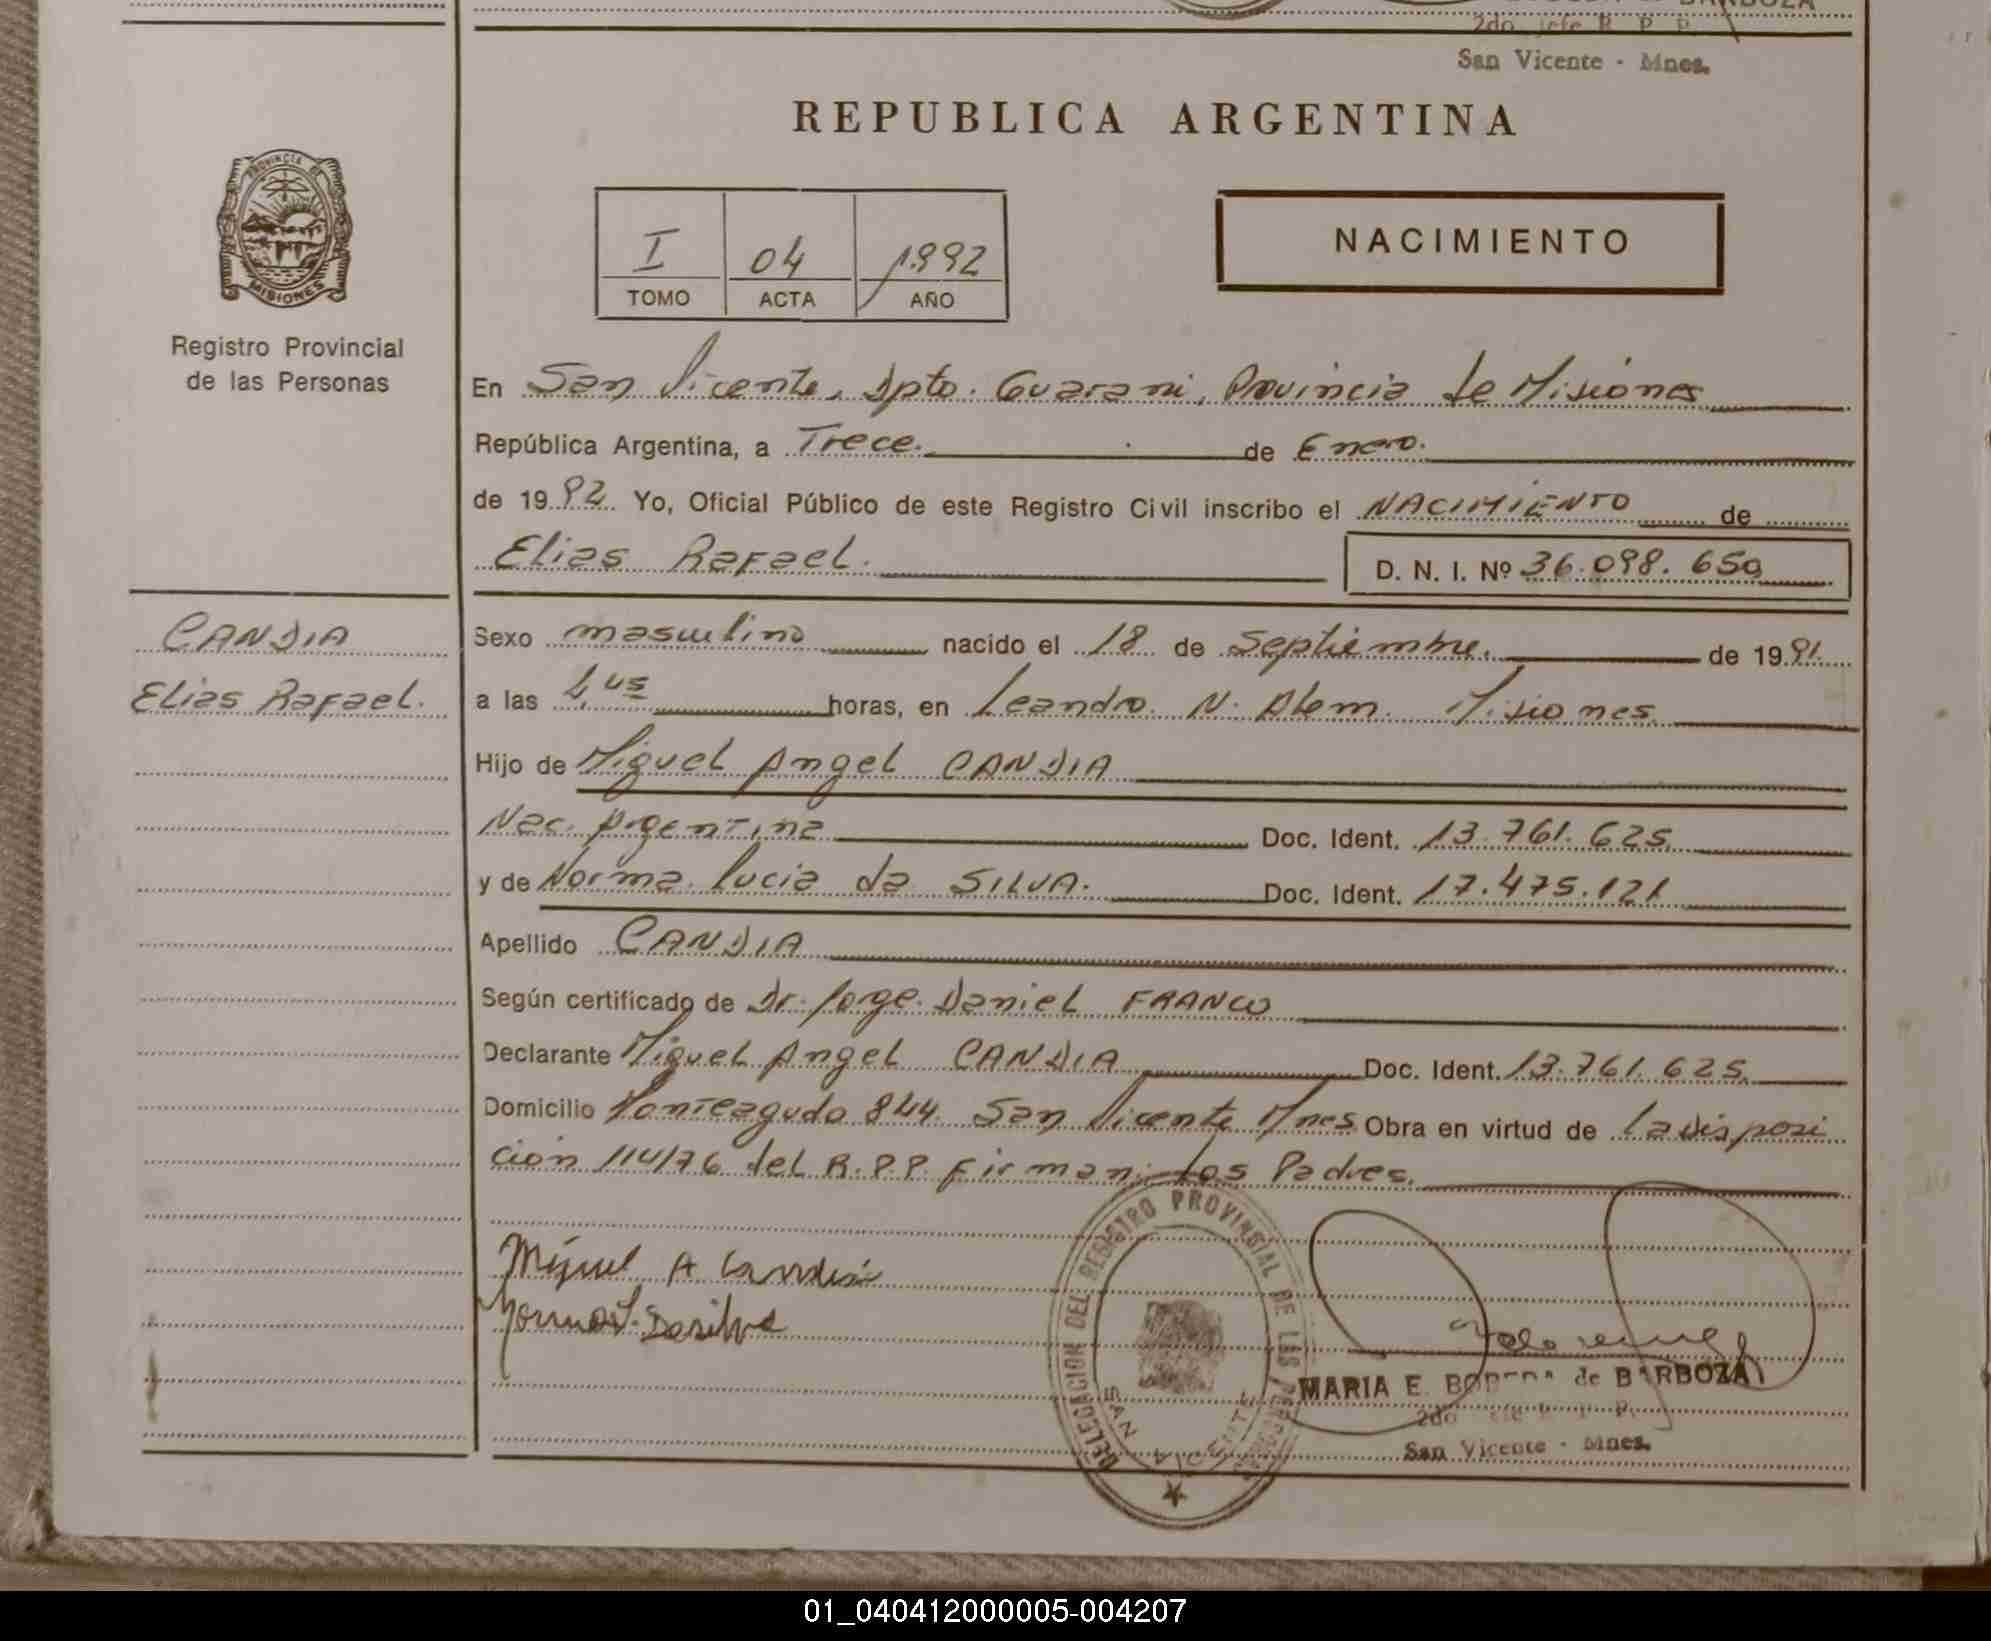 BARBOZA
2do. Jefe R. P. P.
San Vicente - Mnes.
REPUBLICA ARGENTINA
PROVINCIA DE
MISIONES
Registro Provincial
de las Personas
I 04 1992
TOMO ACTA AÑO
NACIMIENTO
En San Vicente, Dpto. Guarani, Provincia de Misiones
República Argentina, a Trece. de Enero.
de 1992 Yo, Oficial Público de este Registro Civil inscribo el NACIMIENTO de
Elias Rafael. D. N. I. Nº 36.098.650
CANDIA
Elias Rafael.
Sexo masculino nacido el 18 de Septiembre. de 1991
a las 4,45 horas, en Leandro N. Alem. Misiones
Hijo de Miguel Angel CANDIA
Nac. Argentina Doc. Ident. 13.761.625
y de Norma Lucia da SILVA. Doc. Ident. 17.475.121
Apellido CANDIA
Según certificado de Dr. Jorge Daniel FRANCO
Declarante Miguel Angel CANDIA Doc. Ident. 13.761.625
Domicilio Monteagudo 844 San Vicente Mnes Obra en virtud de la disposi
ción 114/76 del R.P.P. Firman: Los Padres.
Miguel A Candia
Norma L. Dasilva
DELEGACION DEL REGISTRO PROVINCIAL DE LAS PERSONAS
SAN VICENTE
MARIA E. de BARBOZA
2do
San Vicente - Mnes.
01_040412000005-004207